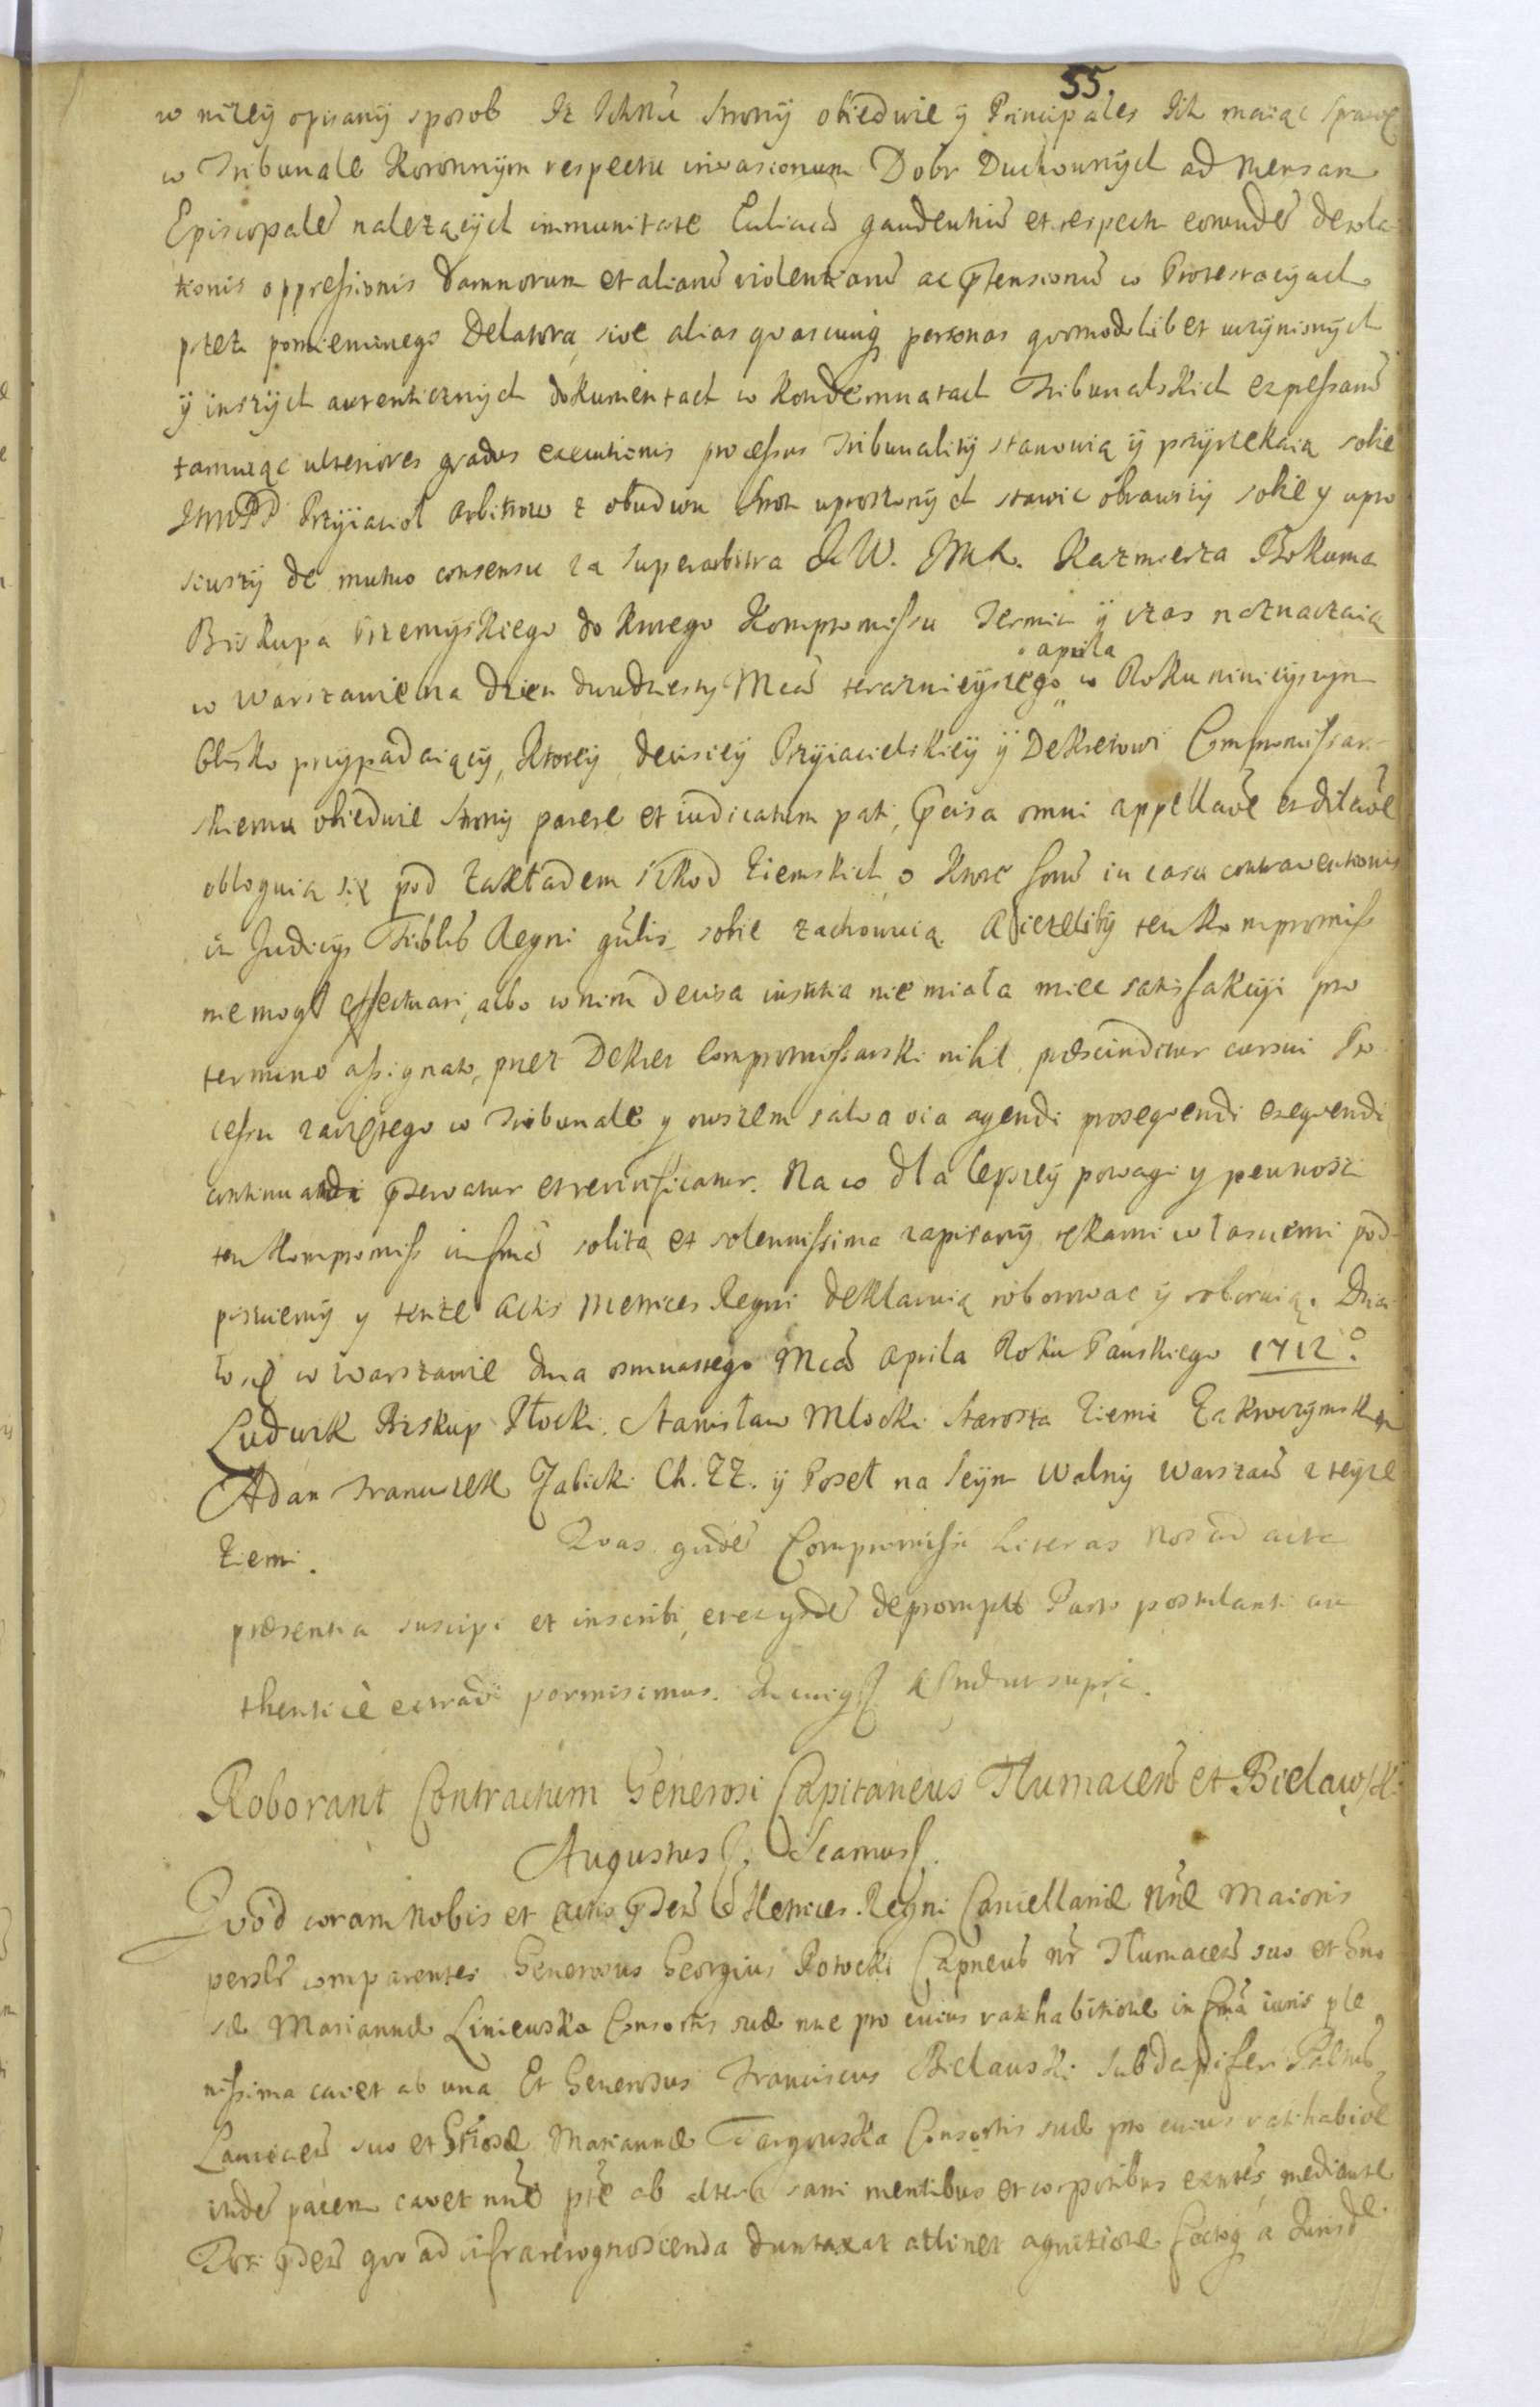 55.
w niżey opisany sposob Iz Ichmć Strony obiedwie y Principales Ich maiąc sprawę
w Tribunale Koronnym respectu invasionum Dobr Duchownych ad Mensam
Episcopalē należących immunitate gaudentiū et respectu eorundē desola
tionis oppressionis damnorum et aliarū violentiarū ac ptensionū w Protestacyach
przez pomienionego Delatora, sive alias quascunq personas quomodolibet uczynionych
y inszych autenticznych dokumentach w kondemnatach Tribunalskich expressarū
tamuiąc ulteriores gradus executionis processus Tribunality stanowią y przyrzekaią sobie
JmPP Przyiacioł Arbitrow z obudwu Stron uproszonych stawic obrawszy sobie y upro
siwszy de mutuo consensu za Superarbitra JW. Jmk. Kazmierza Bokuma
Biskupa Przemyskiego do ktorego Kompromissu Termin y czas naznaczaią
aprila
w Warszawie na dzien dwudziesty Mcā teraznieyszego w Roku ninieyszym
blisko przypadaiący, Ktorey decisiey Przyiacielskiey y Dekretowi Compromissar
skiemu obiedwie Strony parere et iudicatum pati, pcisa omni appellaōe et dilaōe
obloguią się pod zakładem szkod Ziemskich o ktore forū in casu contraventionis
in Judicys Triblib Regni gnlis sobie zachowuią. A ieżeliby ten Kompromiss
nie mogł effectuari, albo w nim decisa iustitia nie miała miec satisfakcyi pro
termino assignato, przez Dekret Compromissarski nihil præscindetur cursui Pro
cessu zaczętego w Tribunale y owszem salva via agendi prosequendi exequendi
continuandi pservatur et reviuificatur. Na co dla lepszey powagi y pewnosci
ten Kompromiss in fmā solita et solennissima zapisany rękami własnemi pod
pisuiemy y tenze Actis Metrices Regni deklaruią roborowac y roboruią. Dzia
ło się w Warszawie dnia osmnastego Mcā Aprila Roku Panskiego 1712º.
Ludwik Biskup Płocki. Stanisław Mlocki Starosta Ziemi Zakroczymskiey
Adam Franciszek Ch. ZZ. y Poseł na Seym Walny Warszaw z teyze
Ziemi. Quas quidē Compromissi Literas nos ad acta
præsentia suscipi et inscribi, et ex ysdē depromptū Parti postulanti au
thentice extradi permisimus. In cuius A ut supra.
Roborant Contractum Generosi Capitaneus Tlumacens et Bielawski
Augustus S. Scamus.
Quod coram Nobis et Actis pntibus Metrices Regni Cancellariæ nræ Maioris
persolr comparentes Generosus Georgius Potocki Capneus nr Tłumacens suo et Gno
sæ Mariannæ Liniewska Consortis suæ nne pro cuius ratihabitione in fmā iuris ple
nissima cavet ab una Et Generosus Franciscus Bielawski Subdapifer Paltus
suo et Gnosæ Mariannæ Targowska Consortis suæ pro cuius ratihabiōe
itidē pariem cavet nne pte ab altera sani mentibus et corporibus exntes, mediante
quo ad infrarecognoscenda duntaxat attinet agnitione factaq a Jurisde